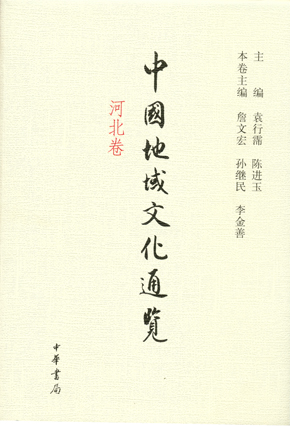 主　编　袁行霈　陈进玉
本卷主编　詹文宏　孙继民　李金善
中國地域文化通覽
河北卷
中華書局